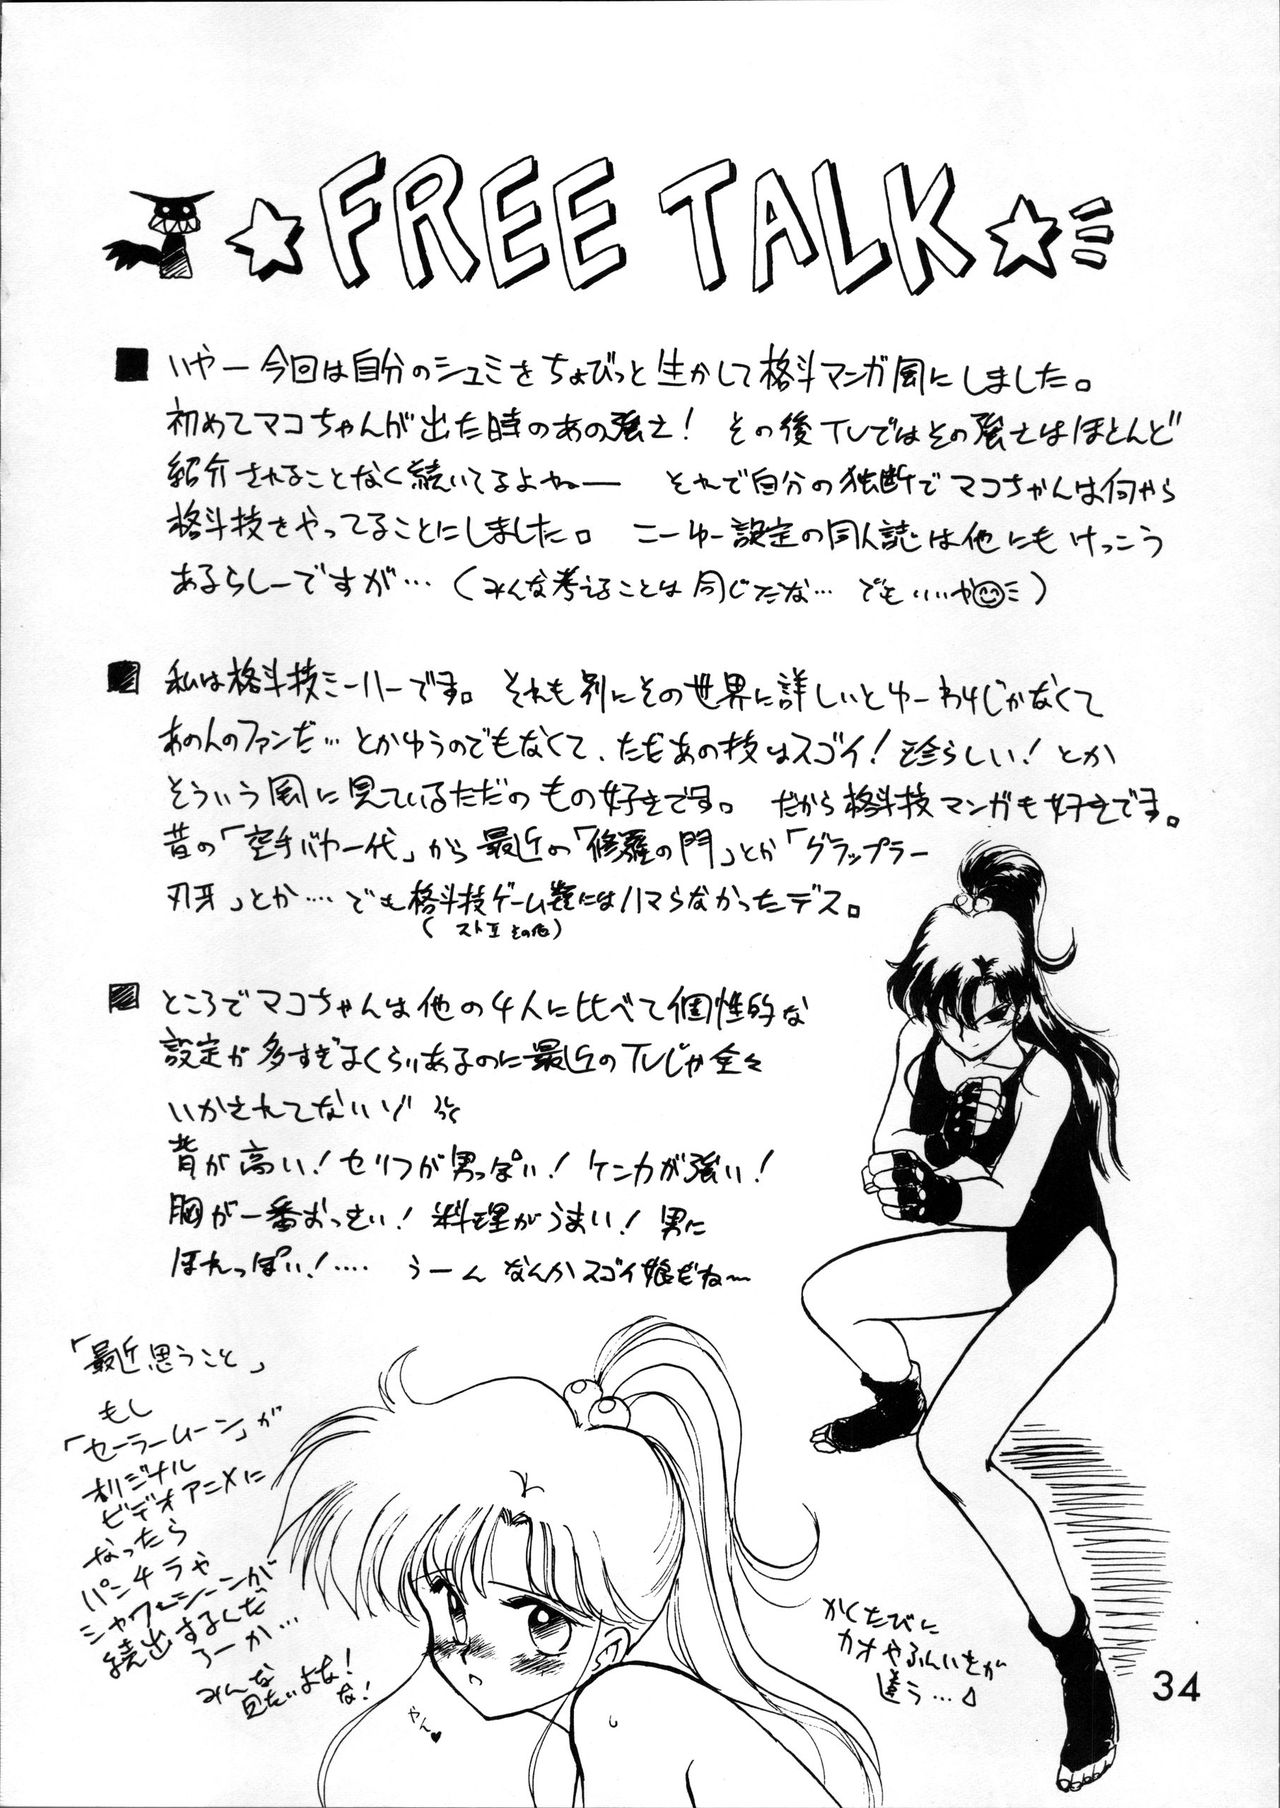 ☆FREE TALK☆
■ いやー今回は自分のシュミをちょびっと生かして格斗マンガ風にしました。
初めてマコちゃんが出た時のあの強さ! その後TVではその強さはほとんど
紹介されることなく続いてるよねー それで自分の独断でマコちゃんは何やら
格斗技をやってることにしました。 こーゆー設定の同人誌は他にもけっこう
あるらしーですが…(みんな考えることは同じだな… でもいいや)
■ 私は格斗技ミーハーです。 それも別にその世界に詳しいとゆーわけじゃなくて
あの人のファンだ…とかゆうのでもなくて、ただあの技はスゴイ! 珍らしい! とか
そういう風に見ているただのもの好きです。 だから格斗技マンガも好きです。
昔の「空手バカ一代」から最近の「修羅の門」とか「グラップラー
刃牙」とか…. でも格斗技ゲーム類にはハマらなかったデス。
(ストⅡ その他)
■ ところでマコちゃんは他の4人に比べて個性的な
設定が多すぎるくらいあるのに最近のTVじゃ全々
いかされてないゾ
背が高い! セリフが男っぽい! ケンカが強い!
胸が一番おっきい! 料理がうまい! 男に
ほれっぽい!…. うーん なんかスゴイ娘だね〜
「最近思うこと」
もし
「セーラームーン」が
オリジナル
ビデオアニメに
なったら
パンチラや
シャワーシーンが
続出するくだ
ろーか…
みんな
見たいよな!
な!
やん♥
かくたびに
カオやふんいきが
違う…
34